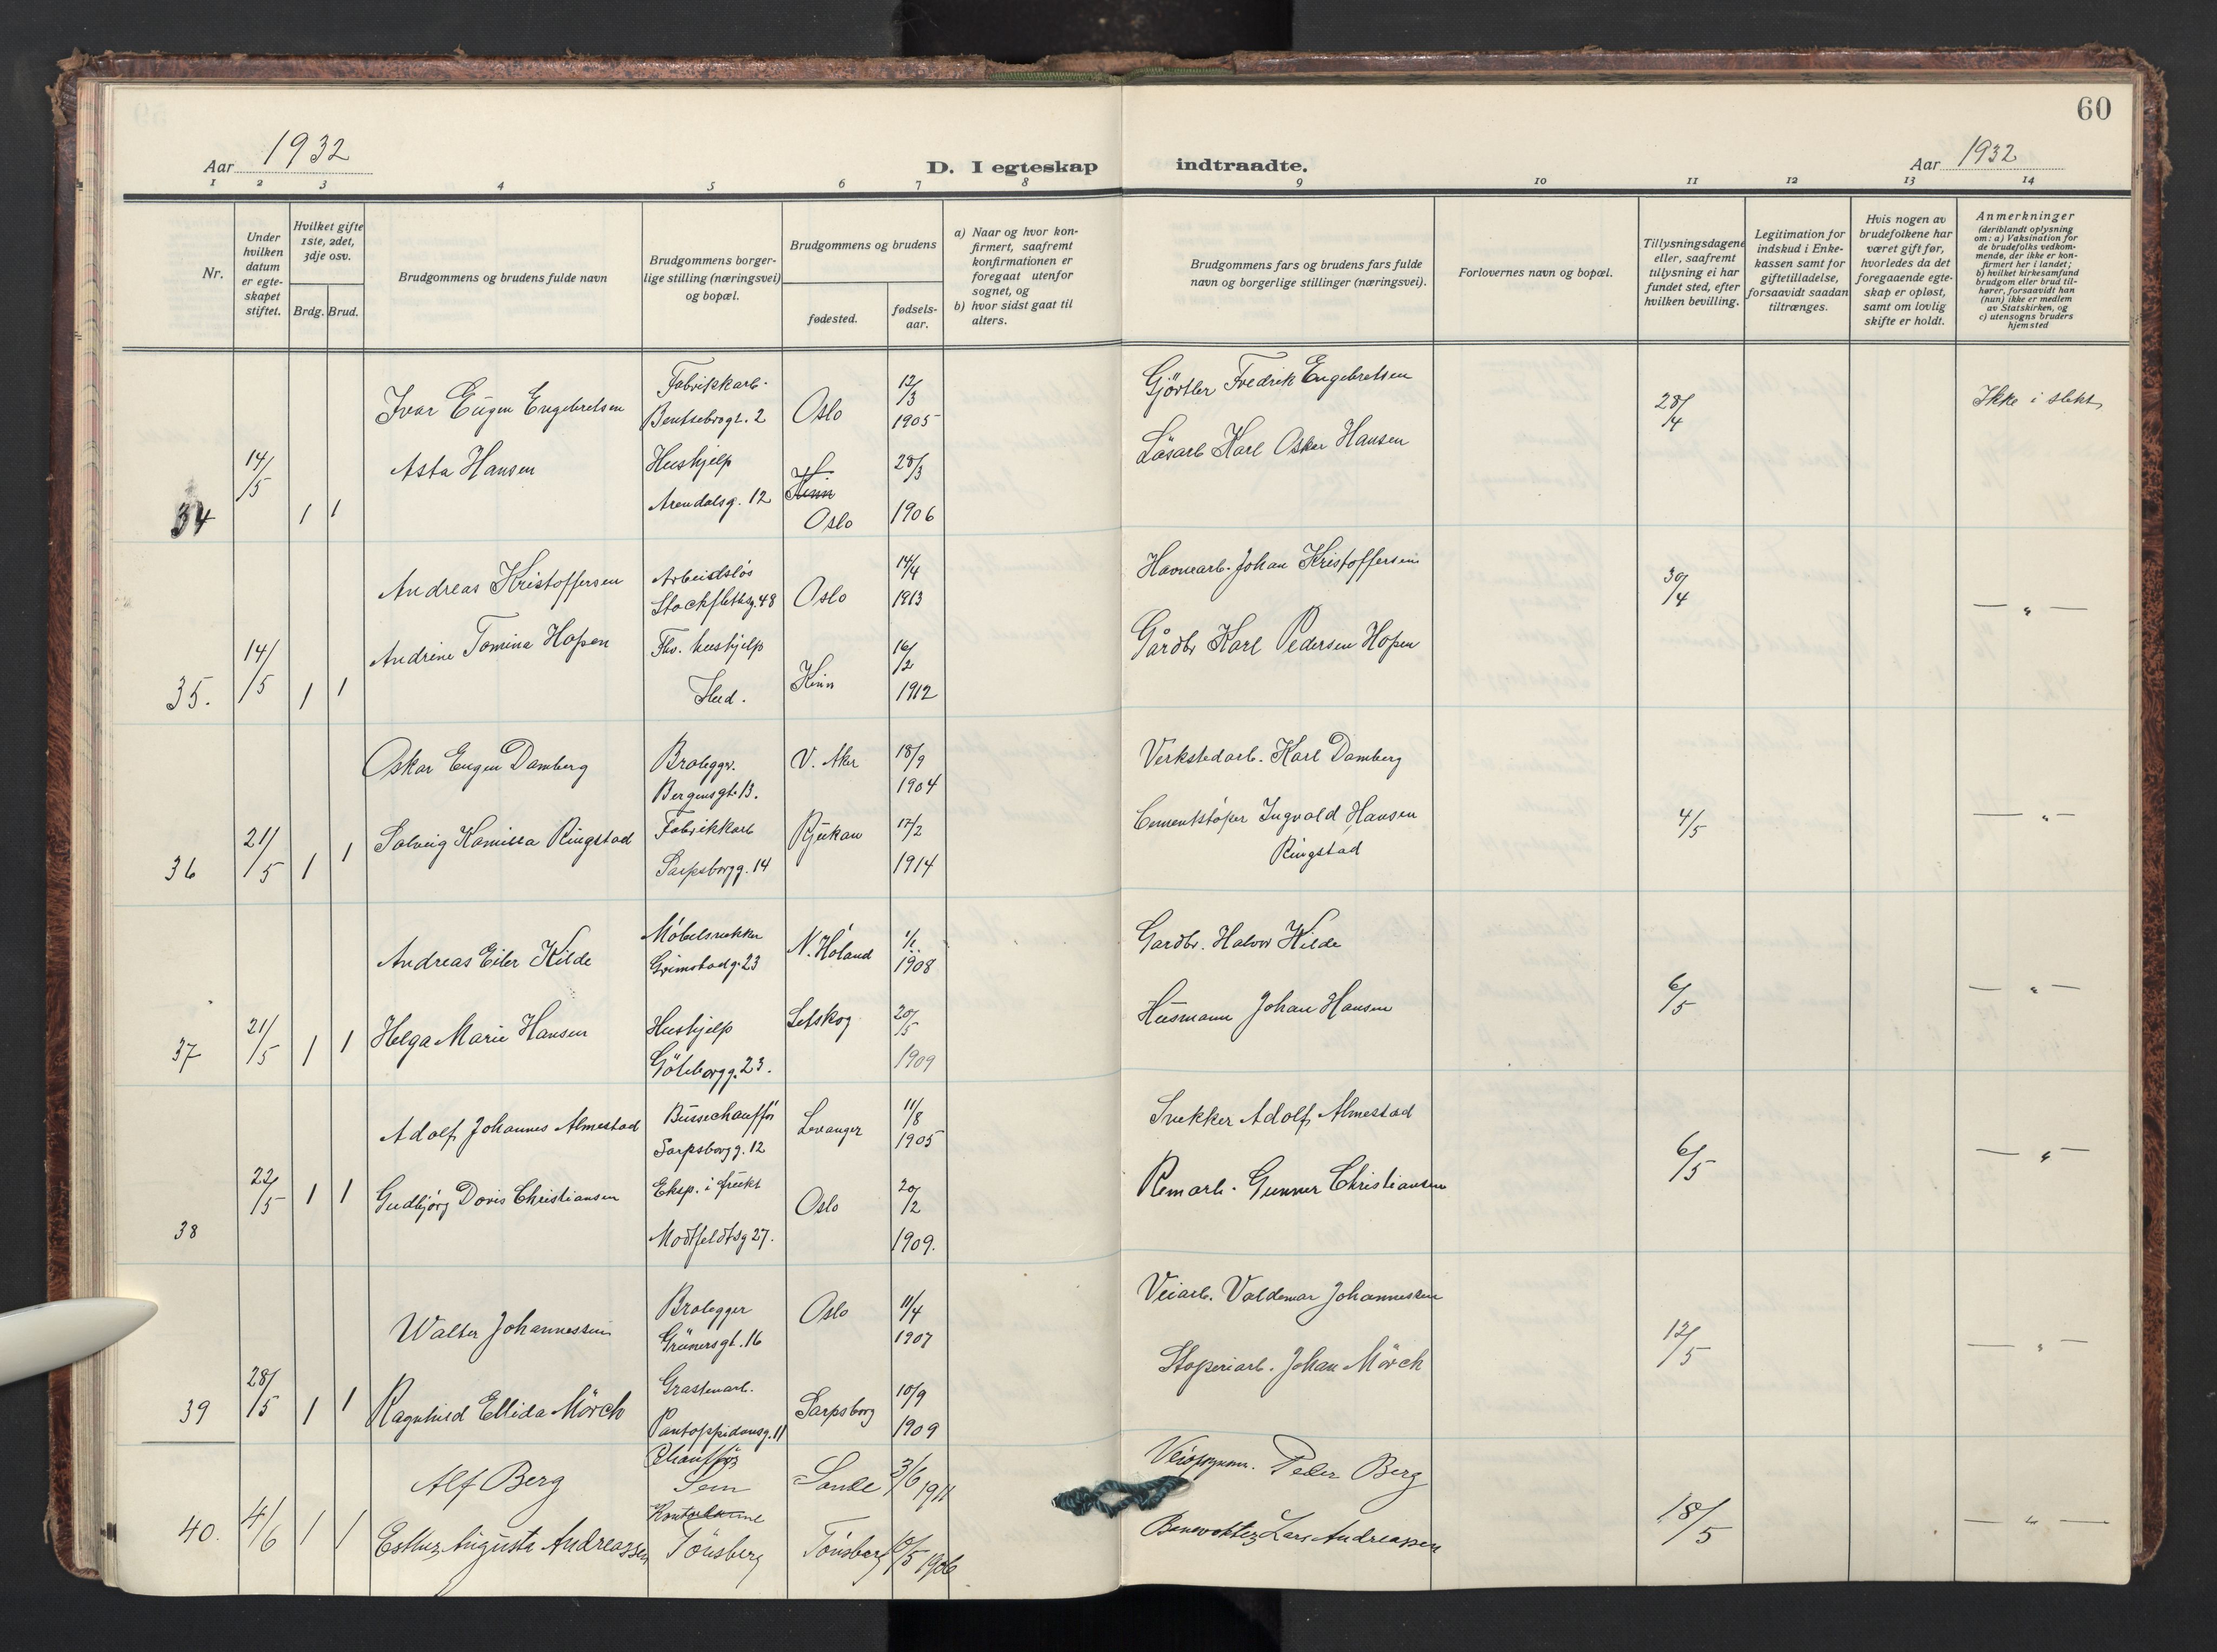 60
Aar 1932
D. I egteskap indtraadte.
Aar 1932
1 2 3 4 5 6 7 8 9 10 11 12 13 14
Nr.
Under hvilken datum er egteskapet stiftet.
Hvilket gifte 1ste, 2det, 3dje osv.
Brdg. Brud.
Brudgommens og brudens fulde navn
Brudgommens borgerlige stilling (næringsvei) og bopæl.
Brudgommens og brudens
fødested.
fødselsaar.
a) Naar og hvor konfirmert, saafremt konfirmationen er foregaat utenfor sognet, og
b) hvor sidst gaat til alters.
Brudgommens fars og brudens fars fulde navn og borgerlige stillinger (næringsvei).
Forlovernes navn og bopæl.
Tillysningsdagene eller, saafremt tillysning ei har fundet sted, efter hvilken bevilling.
Legitimation for indskud i Enkekassen samt for giftetilladelse, forsaavidt saadan tiltrænges.
Hvis nogen av brudefolkene har været gift før, hvorledes da det foregaaende egteskap er opløst, samt om lovlig skifte er holdt.
Anmerkninger
(deriblandt oplysning om: a) Vaksination for de brudefolks vedkommende, der ikke er konfirmert her i landet;
b) hvilket kirkesamfund brudgom eller brud tilhører, forsaavidt han (hun) ikke er medlem av Statskirken, og
c) utensogns bruders hjemsted
Ivar Eugen Engebretsen Fabrikkarb. Bentsebrogt. 2 Oslo 12/3 1905 Gjörtler Fredrik Engebretsen 28/4 Ikke i slekt
34 14/5 1 1 Asta Hansen Hushjelp Arendalsg. 12 Kinn Oslo 28/3 1906 Løsarb Karl Oskar Hansen
Andreas Kristoffersen Arbeidsløs Stockflethsg. 48 Oslo 14/4 1913 Havnearb. Johan Kristoffersen 30/4 — " —
35. 14/5 1 1 Andrine Tomina Hopen Fhv. hushjelp Ibid. Kinn 16/2 1912 Gårdbr Karl Pedersen Hopen
Oskar Eugen Damberg Brolegger. Bergensgt. 13. V. Aker 18/9 1904 Verkstedarb. Karl Damberg
36 21/5 1 1 Solveig Kamilla Ringstad Fabrikkarb Sarpsborgg. 14 Rjukan 17/2 1914 Cementstøper Ingvald Hansen Ringstad 4/5 — " —
Andreas Eiler Kilde Møbelsnekker Grimstadg. 23 N. Høland 1/1 1908 Gardbr. Halvor Kilde
37 21/5 1 1 Helga Marie Hansen Hushjelp Göteborgg. 23. Setskog 20/5 1909 Husmann Johan Hansen 6/5 — " —
Adolf Johannes Almestad Busschauffør Sarpsborgg. 12 Levanger 11/8 1905 Snekker Adolf Almestad
38 22/5 1 1 Gudbjørg Doris Christiansen Eksp. i frukt Motzfeldtsg 27. Oslo 20/2 1909. Remarb. Gunner Christiansen 6/5 — " —
Walter Johannessen Brolegger Grünersgt. 16 Oslo 11/4 1907 Veiarb. Valdemar Johannessen
39 28/5 1 1 Ragnhild Ellida Mörch Pantoppidansg. 11 Sarpsborg 10/9 1909 Støperiarb. Johan Mörch 12/5 — " —
Alf Berg Chauffør Sem Sande 3/6 1911 Peder Berg
40. 4/6 1 1 Esther Augusta Andreassen Kontordame Tønsberg Tønsberg 10/5 1906 Banevokter Lars Andreassen 18/5 — " —